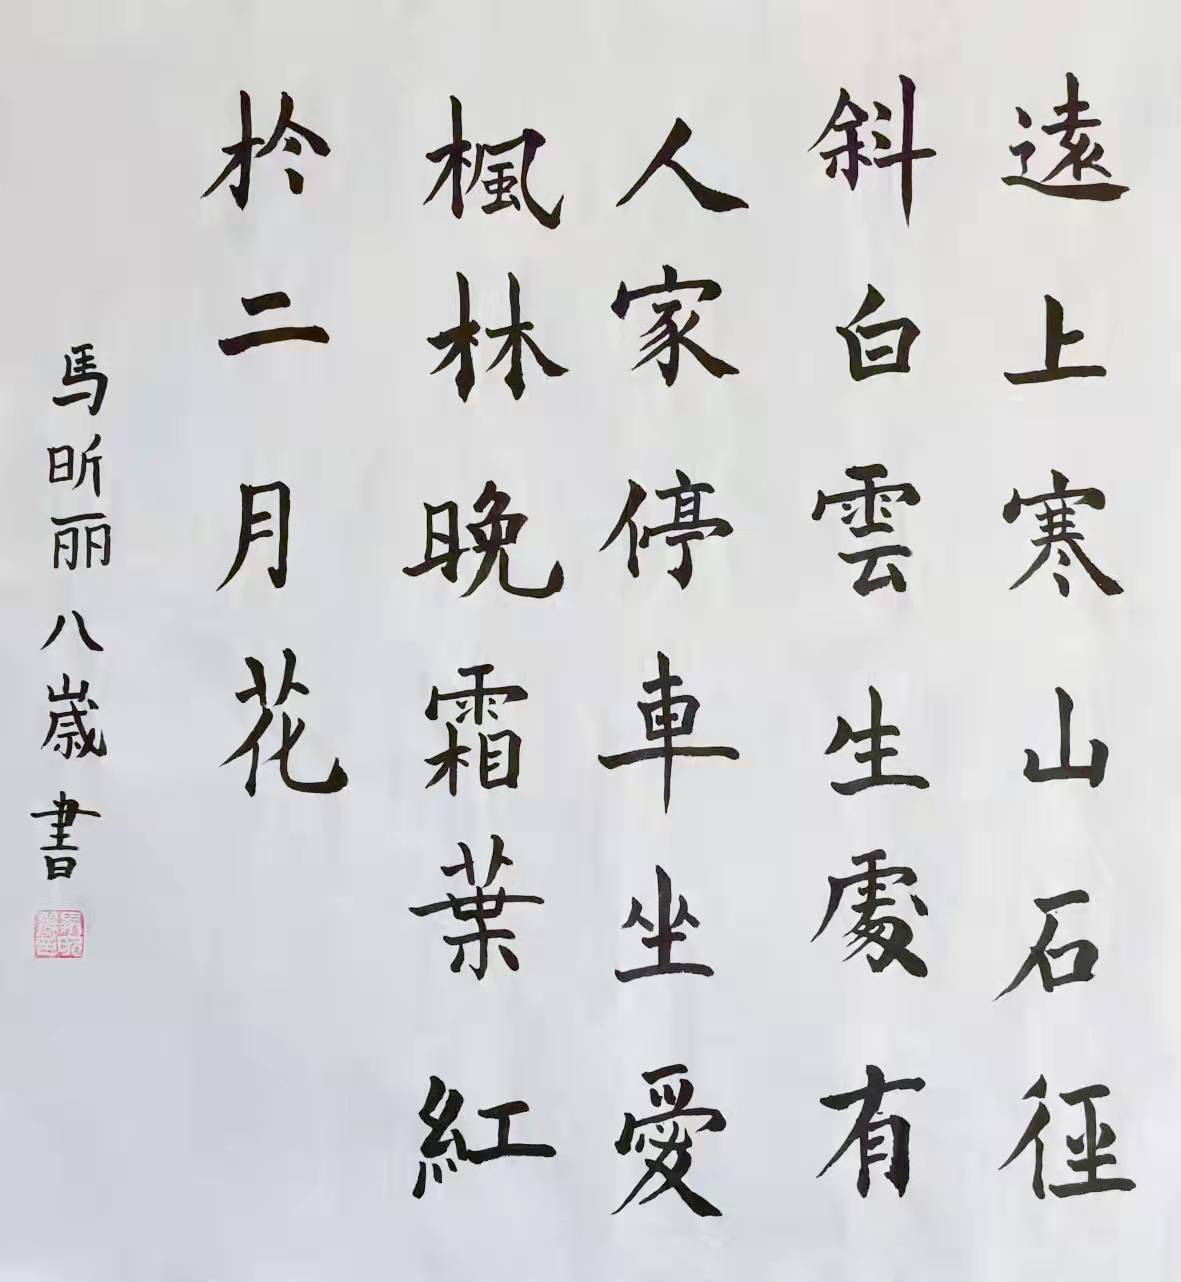 遠上寒山石徑
斜白雲生處有
人家停車坐愛
楓林晚霜葉紅
於二月花
馬昕丽八歲書